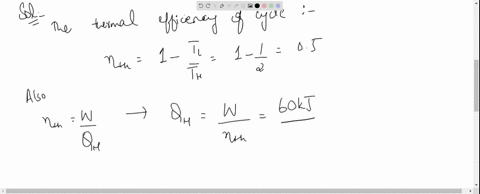 Sol:-
The termal efficiency of cycle :-
ηth = 1 - TL/TH = 1 - 1/2 = 0.5
Also
ηth = W/QH → QH = W/ηth = 60kJ